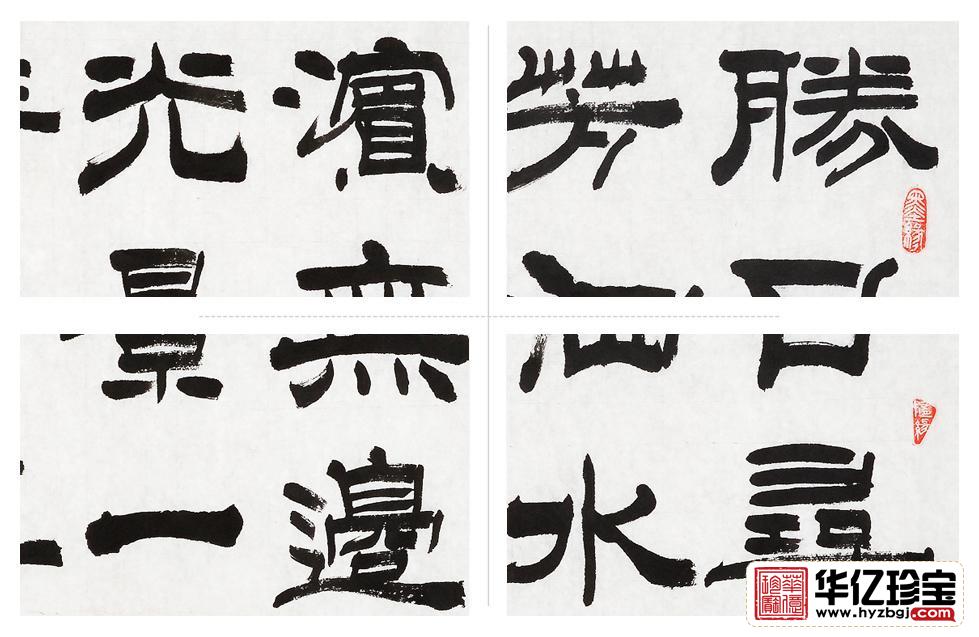 勝日尋
芳泗水
濱無邊
光景一
华亿珍宝
www.hyzbgj.com